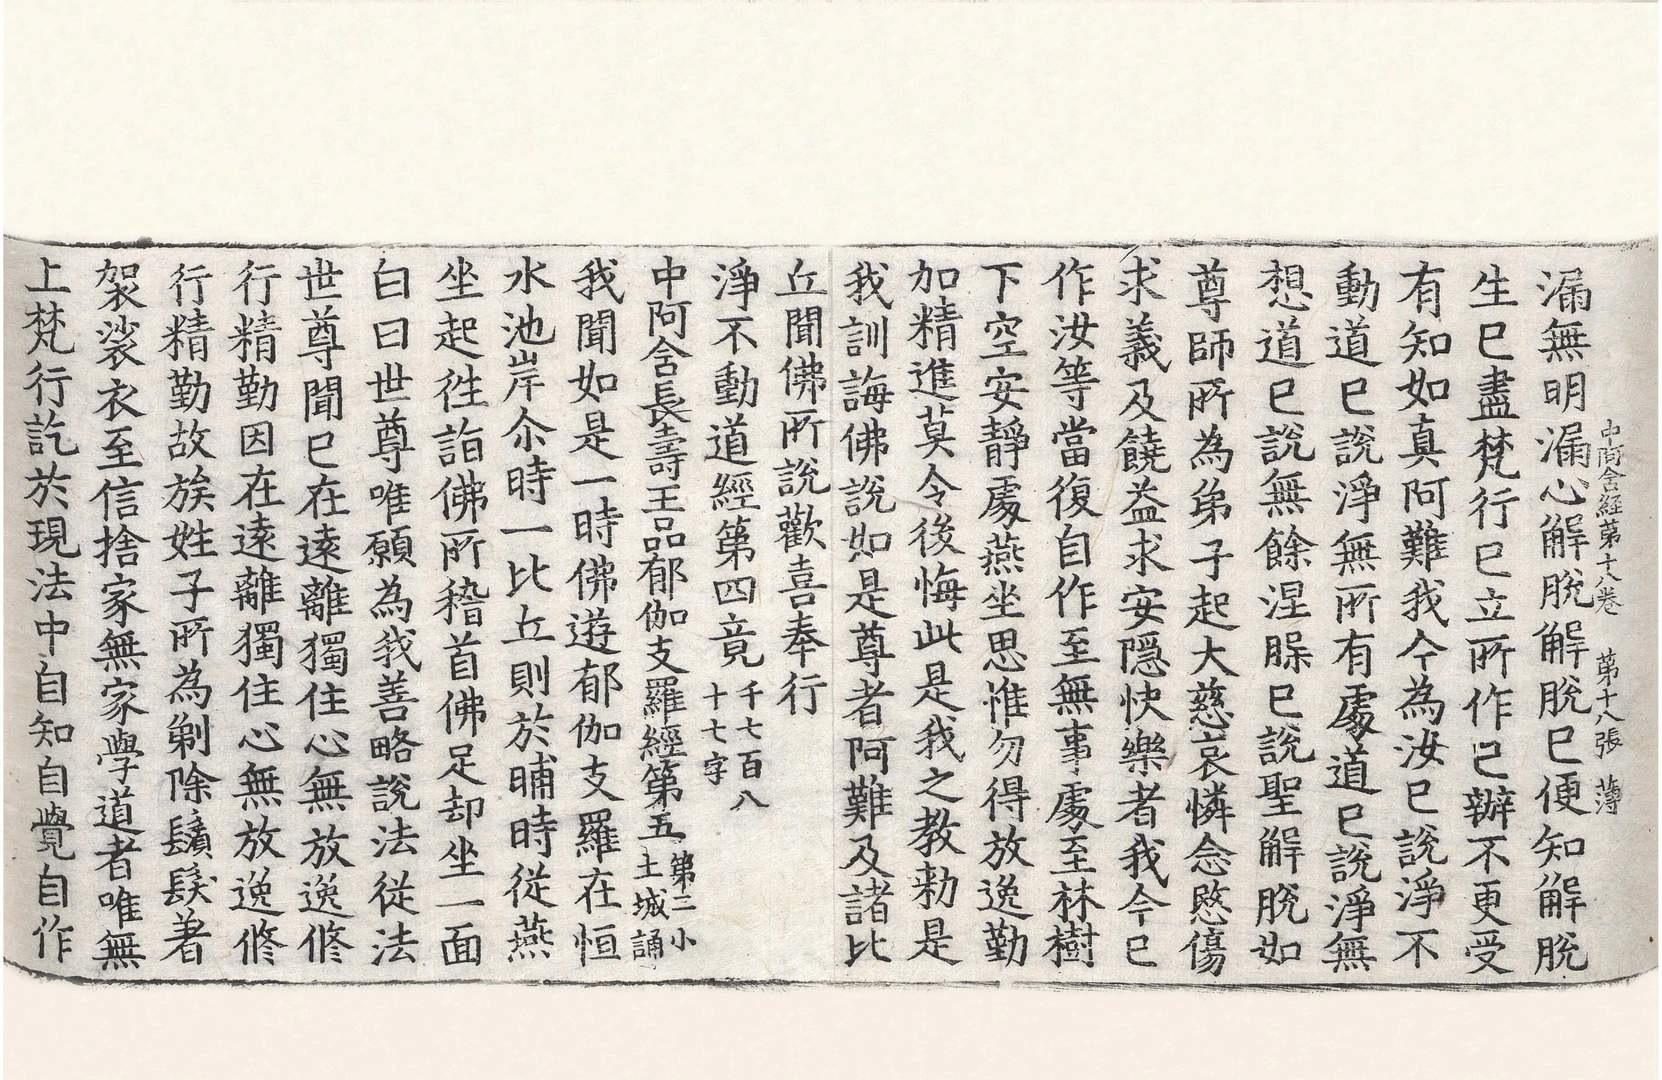 中阿含経第十八巻　第十八張　薄
漏無明漏心解脫解脫已便知解脫
生已盡梵行已立所作已辦不更受
有知如真阿難我今為汝已說淨不
動道已說淨無所有處道已說淨無
想道已說無餘涅槃已說聖解脫如
尊師所為弟子起大慈哀憐念愍傷
求義及饒益求安隱快樂者我今已
作汝等當復自作至無事處至林樹
下空安靜處燕坐思惟勿得放逸勤
加精進莫令後悔此是我之教勑是
我訓誨佛說如是尊者阿難及諸比
丘聞佛所說歡喜奉行
淨不動道經第四竟 千七百八
十七字
中阿含長壽王品郁伽支羅經第五 第二小
土城誦
我聞如是一時佛遊郁伽支羅在恒
水池岸尒時一比丘則於晡時從燕
坐起往詣佛所稽首佛足却坐一面
白曰世尊唯願為我善略說法從法
世尊聞已在遠離獨住心無放逸修
行精勤因在遠離獨住心無放逸修
行精勤故族姓子所為剃除鬚髮著
袈裟衣至信捨家無家學道者唯無
上梵行訖於現法中自知自覺自作